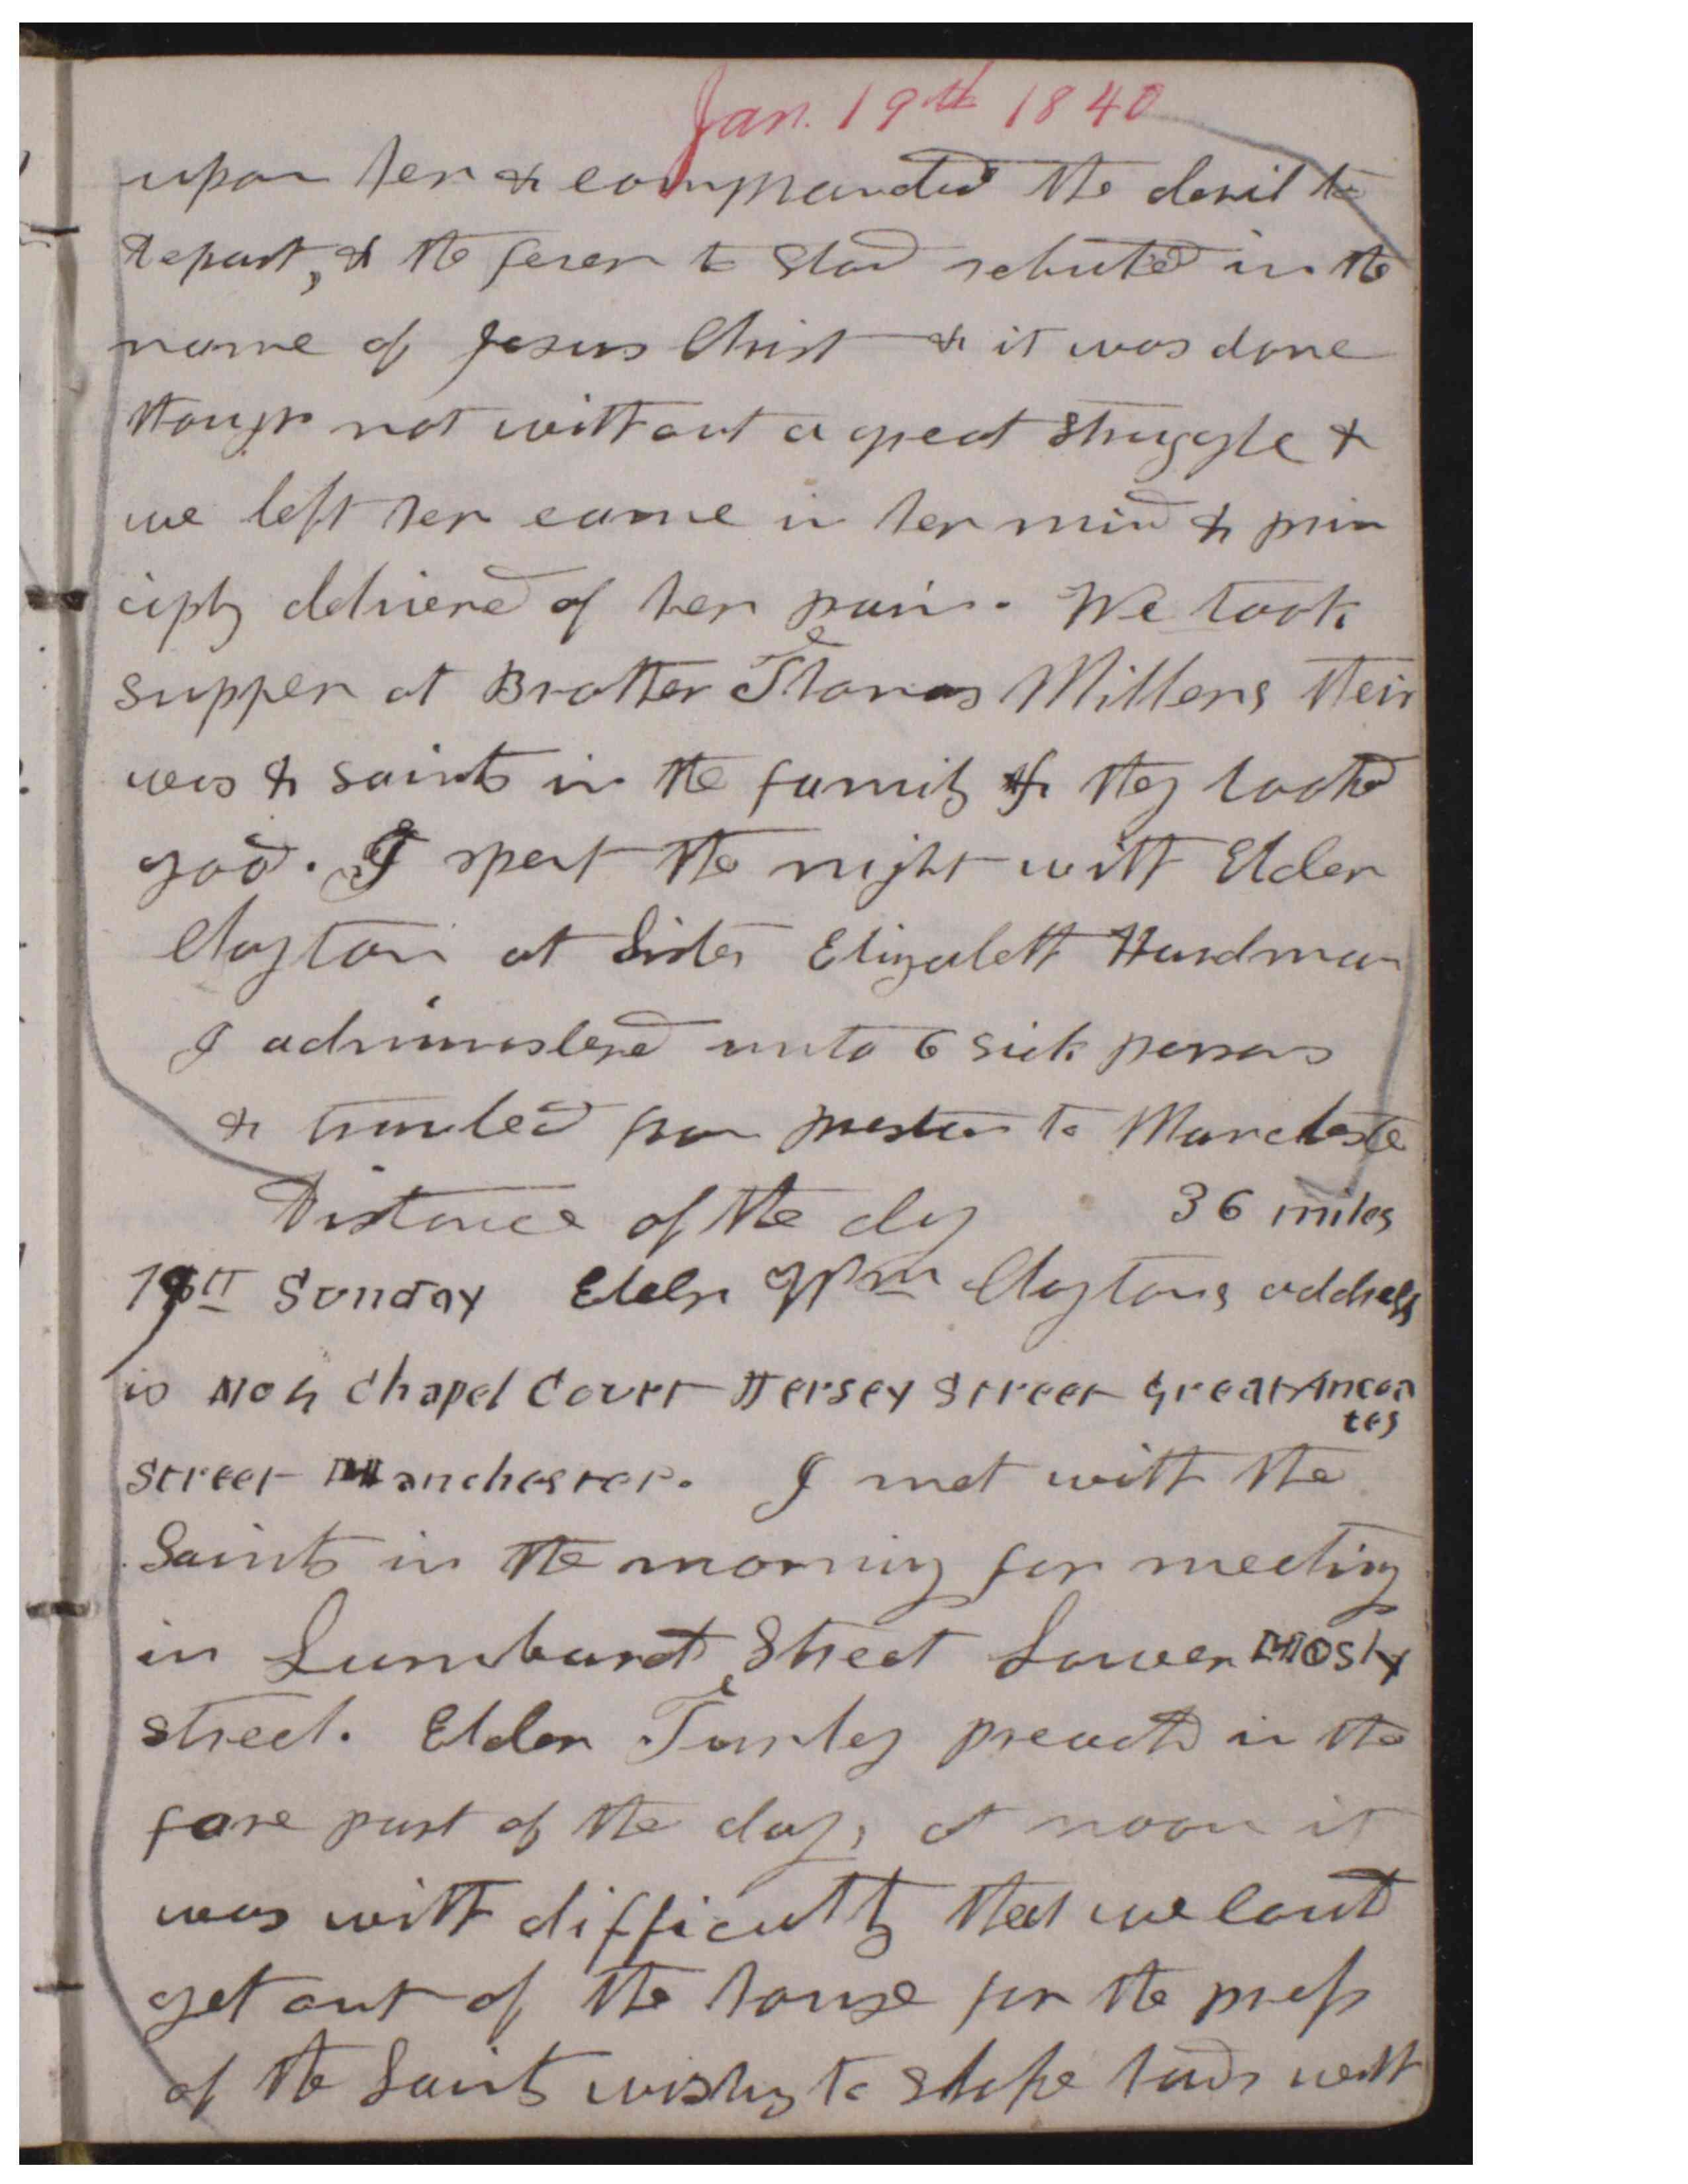 Jan. 19th 1840
upon her & commanded the devil to
depart, & the fever to stand rebuked in the
name of Jesus Christ & it was done
though not without a great struggle &
we left her came in her mind & prin
ciply delivered of her pain. We took
supper at Brother Thomas Millers their
was & saints in the family & they looked
good. I spent the night with Elder
Clayton at Sister Elizabeth Hardman
I administered unto 6 sick persons
& traveled from preston to Manchester
Distance of the day 36 miles
19th Sunday Elder Wm Claytons address
is No 4 Chapel Court Jersey Street Great Ancoa
tes
Street Manchester. I met with the
Saints in the morning for meeting
in Lumbard Street Lower Mosly
street. Elder Turley preachd in the
fore part of the day, at noon it
was with difficulty that we could
get out of the house for the press
of the Saints wishing to shake hands with